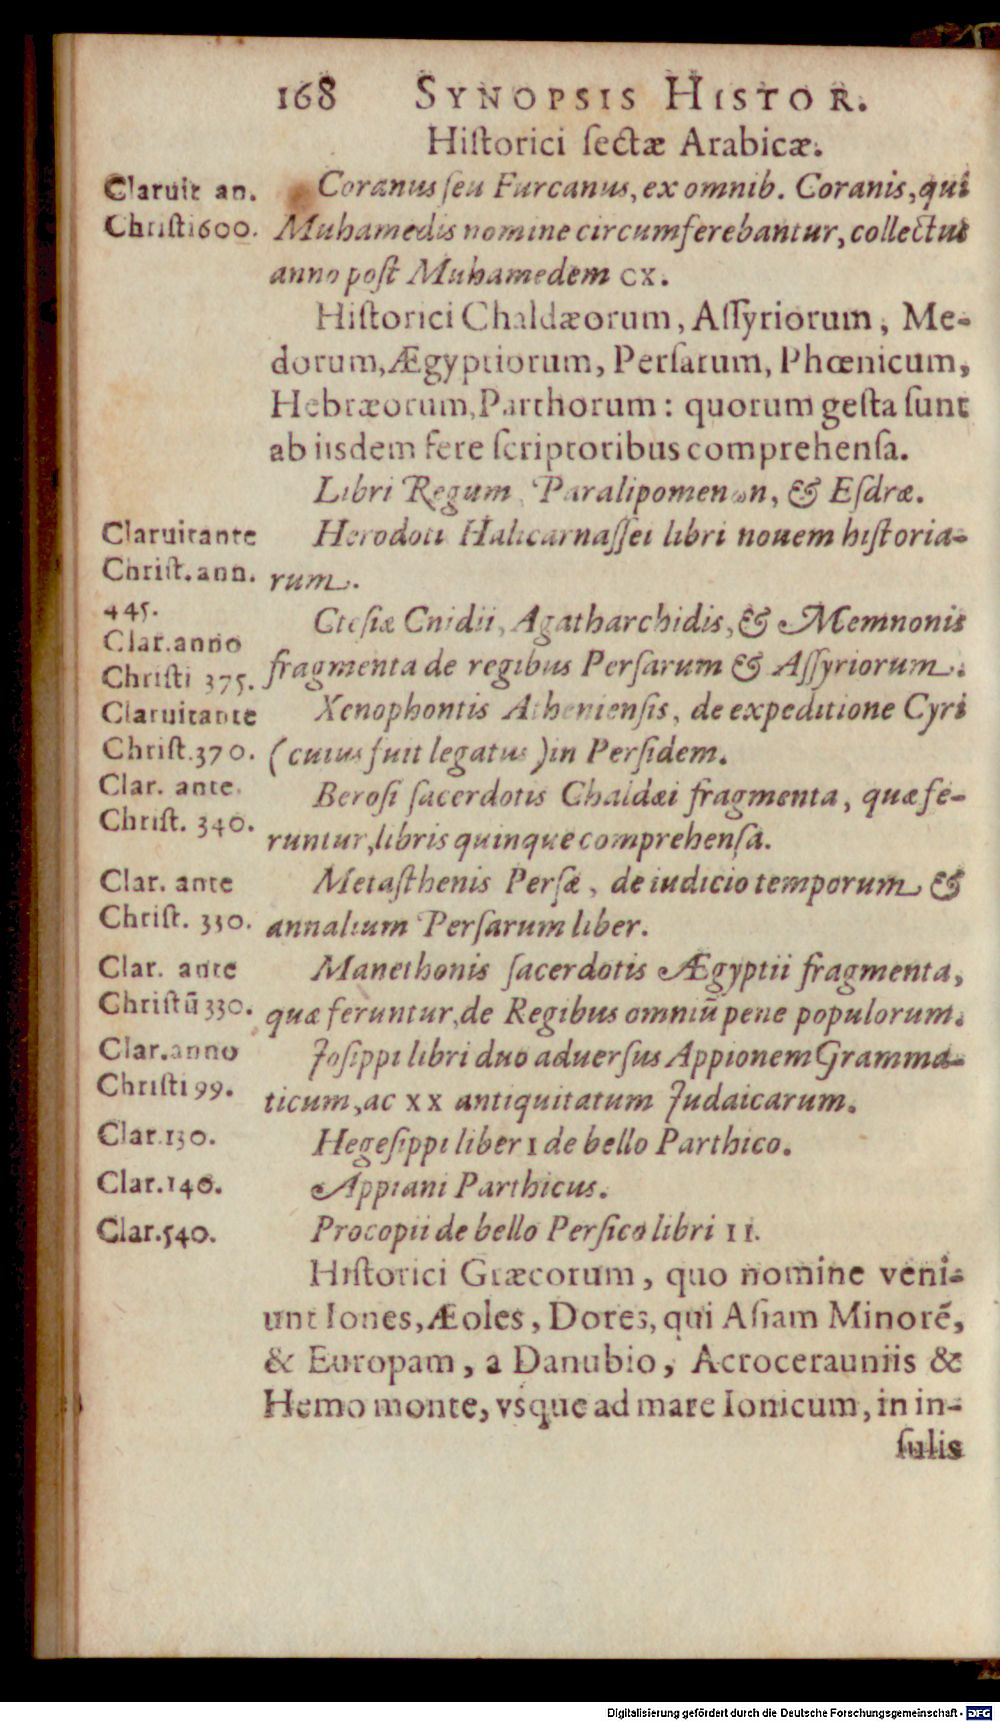 168 SYNOPSIS HISTOR.
Hiſtorici ſectæ Arabicæ.
Claruit an.
Chriſti 600.
Coranus ſeu Furcanus, ex omnib. Coranis, qui
Muhamedis nomine circumferebantur, collectus
anno poſt Muhamedem CX.
Hiſtorici Chaldæorum, Aſſyriorum, Me-
dorum, Ægyptiorum, Perſarum, Phœnicum,
Hebræorum, Parthorum: quorum geſta ſunt
ab iisdem fere ſcriptoribus comprehenſa.
Libri Regum, Paralipomenωn, & Eſdræ.
Claruit ante
Chriſt. ann.
445.
Herodoti Halicarnaſſei libri nouem hiſtoria-
rum.
Clar. anno
Chriſti 375.
Cteſiæ Cnidii, Agatharchidis, & Memnonis
fragmenta de regibus Perſarum & Aſſyriorum.
Claruit ante
Chriſt. 370.
Xenophontis Athenienſis, de expeditione Cyri
(cuius fuit legatus) in Perſidem.
Clar. ante
Chriſt. 340.
Beroſi ſacerdotis Chaldæi fragmenta, quæ fe-
runtur, libris quinque comprehenſa.
Clar. ante
Chriſt. 330.
Metaſthenis Perſæ, de iudicio temporum &
annalium Perſarum liber.
Clar. ante
Chriſtū 330.
Manethonis ſacerdotis Ægyptii fragmenta,
quæ feruntur, de Regibus omniū pene populorum.
Clar. anno
Chriſti 99.
Joſippi libri duo aduerſus Appionem Gramma-
ticum, ac XX antiquitatum Judaicarum.
Clar. 130.
Hegeſippi liber I de bello Parthico.
Clar. 140.
Appiani Parthicus.
Clar. 540.
Procopii de bello Perſico libri II.
Hiſtorici Græcorum, quo nomine veni-
unt Iones, Æoles, Dores, qui Aſiam Minorē,
& Europam, a Danubio, Acrocerauniis &
Hemo monte, vsque ad mare Ionicum, in in-
ſulis
Digitalisierung gefördert durch die Deutsche Forschungsgemeinschaft - DFG